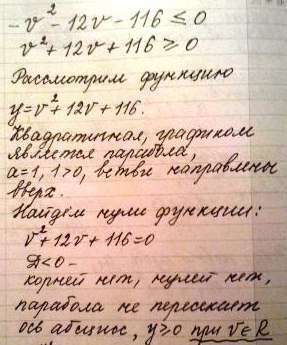 -v² - 12v - 116 ≤ 0
v² + 12v + 116 ≥ 0
Рассмотрим функцию
y = v² + 12v + 116.
Квадратичная, графиком
является парабола,
a=1, 1>0, ветви направлены
вверх.
Найдём нули функции:
v² + 12v + 116 = 0
Д<0 -
корней нет, нулей нет,
парабола не пересекает
ось абсцисс, y≥0 при v∈R